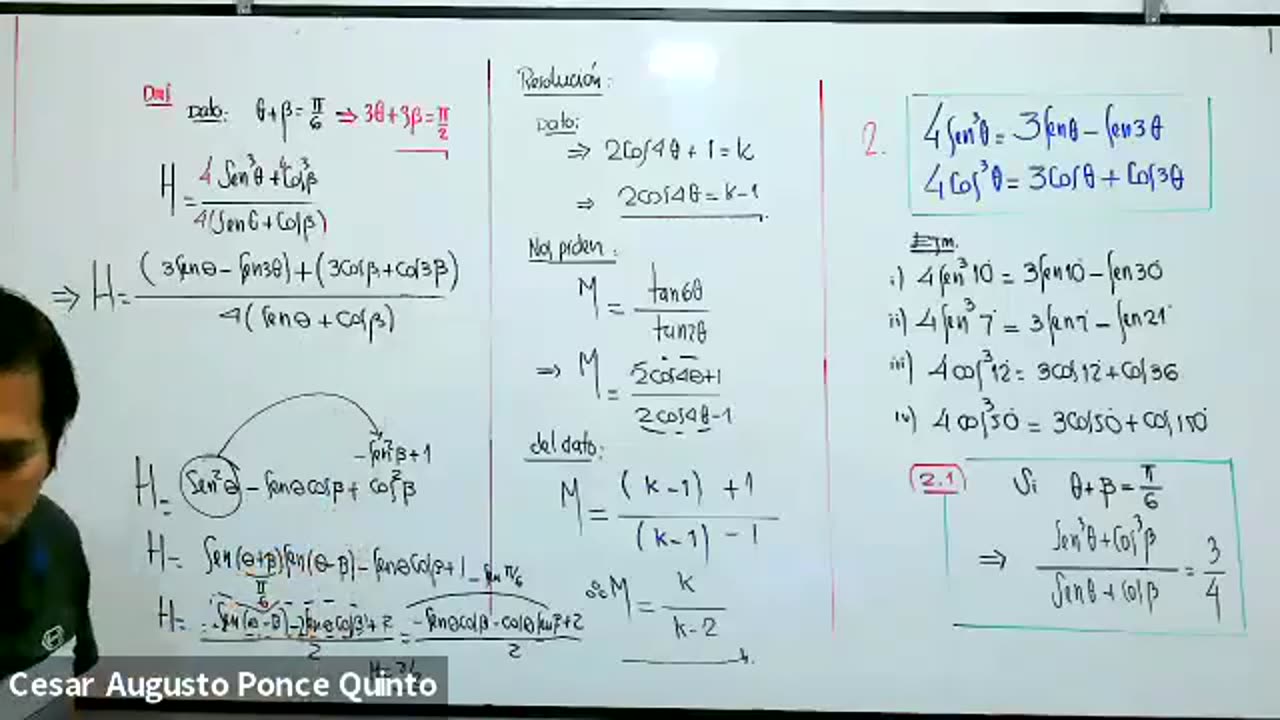 Dato: θ+β=π/6 ⇒ 3θ+3β=π/2
H = (4Sen³θ+4Cos³β)/(4(Senθ+Cosβ))
⇒ H = ((3Senθ-Sen3θ)+(3Cosβ+Cos3β))/(4(Senθ+Cosβ))
-Sen²β+1
H = Sen²θ - SenθCosβ + Cos²β
H = Sen(θ+β)Sen(θ-β) - SenθCosβ+1
π/6
Sen π/6
H = (Sen(θ-β)-2SenθCosβ+2)/2 = (-SenθCosβ-CosθSenβ+2)/2
Resolución:
Dato:
⇒ 2Cos4θ+1=k
⇒ 2cos4θ=k-1
Nos piden:
M = tan6θ/tan2θ
⇒ M = (2cos4θ+1)/(2cos4θ-1)
del dato:
M = ((k-1)+1)/((k-1)-1)
∴ M = k/(k-2)
2.
4Sen³θ=3Senθ-Sen3θ
4Cos³θ=3Cosθ+Cos3θ
Ejm.
i) 4Sen³10°=3Sen10°-Sen30°
ii) 4Sen³7°=3Sen7°-Sen21°
iii) 4cos³12°=3Cos12°+Cos36°
iv) 4cos³50°=3Cos50°+Cos150°
2.1 Si θ+β=π/6
⇒ (Sen³θ+Cos³β)/(Senθ+Cosβ) = 3/4
Cesar Augusto Ponce Quinto